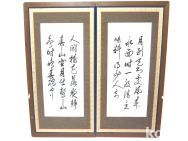 月到天心處風來
水面時一般清意
味料得少人知
人閒桂花落夜靜
春山空月出驚山
鳥時鳴春澗中